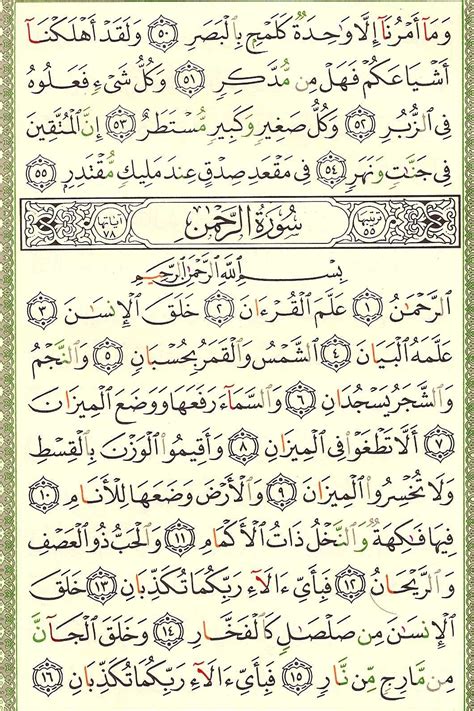 وَمَآ أَمْرُنَآ إِلَّا وَٰحِدَةٌ كَلَمْحٍۭ بِٱلْبَصَرِ ٥٠ وَلَقَدْ أَهْلَكْنَآ
أَشْيَاعَكُمْ فَهَلْ مِن مُّدَّكِرٍ ٥١ وَكُلُّ شَىْءٍ فَعَلُوهُ
فِى ٱلزُّبُرِ ٥٢ وَكُلُّ صَغِيرٍ وَكَبِيرٍ مُّسْتَطَرٌ ٥٣ إِنَّ ٱلْمُتَّقِينَ
فِى جَنَّٰتٍ وَنَهَرٍ ٥٤ فِى مَقْعَدِ صِدْقٍ عِندَ مَلِيكٍ مُّقْتَدِرٍۭ ٥٥
ترتيبها ٥٥ سُورَةُ الرَّحْمَٰن آياتها ٧٨
بِسْمِ ٱللَّهِ ٱلرَّحْمَٰنِ ٱلرَّحِيمِ
ٱلرَّحْمَٰنُ ١ عَلَّمَ ٱلْقُرْءَانَ ٢ خَلَقَ ٱلْإِنسَٰنَ ٣
عَلَّمَهُ ٱلْبَيَانَ ٤ ٱلشَّمْسُ وَٱلْقَمَرُ بِحُسْبَانٍ ٥ وَٱلنَّجْمُ
وَٱلشَّجَرُ يَسْجُدَانِ ٦ وَٱلسَّمَآءَ رَفَعَهَا وَوَضَعَ ٱلْمِيزَانَ
٧ أَلَّا تَطْغَوْا۟ فِى ٱلْمِيزَانِ ٨ وَأَقِيمُوا۟ ٱلْوَزْنَ بِٱلْقِسْطِ
وَلَا تُخْسِرُوا۟ ٱلْمِيزَانَ ٩ وَٱلْأَرْضَ وَضَعَهَا لِلْأَنَامِ ١٠
فِيهَا فَٰكِهَةٌ وَٱلنَّخْلُ ذَاتُ ٱلْأَكْمَامِ ١١ وَٱلْحَبُّ ذُو ٱلْعَصْفِ
وَٱلرَّيْحَانُ ١٢ فَبِأَىِّ ءَالَآءِ رَبِّكُمَا تُكَذِّبَانِ ١٣ خَلَقَ
ٱلْإِنسَٰنَ مِن صَلْصَٰلٍ كَٱلْفَخَّارِ ١٤ وَخَلَقَ ٱلْجَآنَّ
مِن مَّارِجٍ مِّن نَّارٍ ١٥ فَبِأَىِّ ءَالَآءِ رَبِّكُمَا تُكَذِّبَانِ ١٦